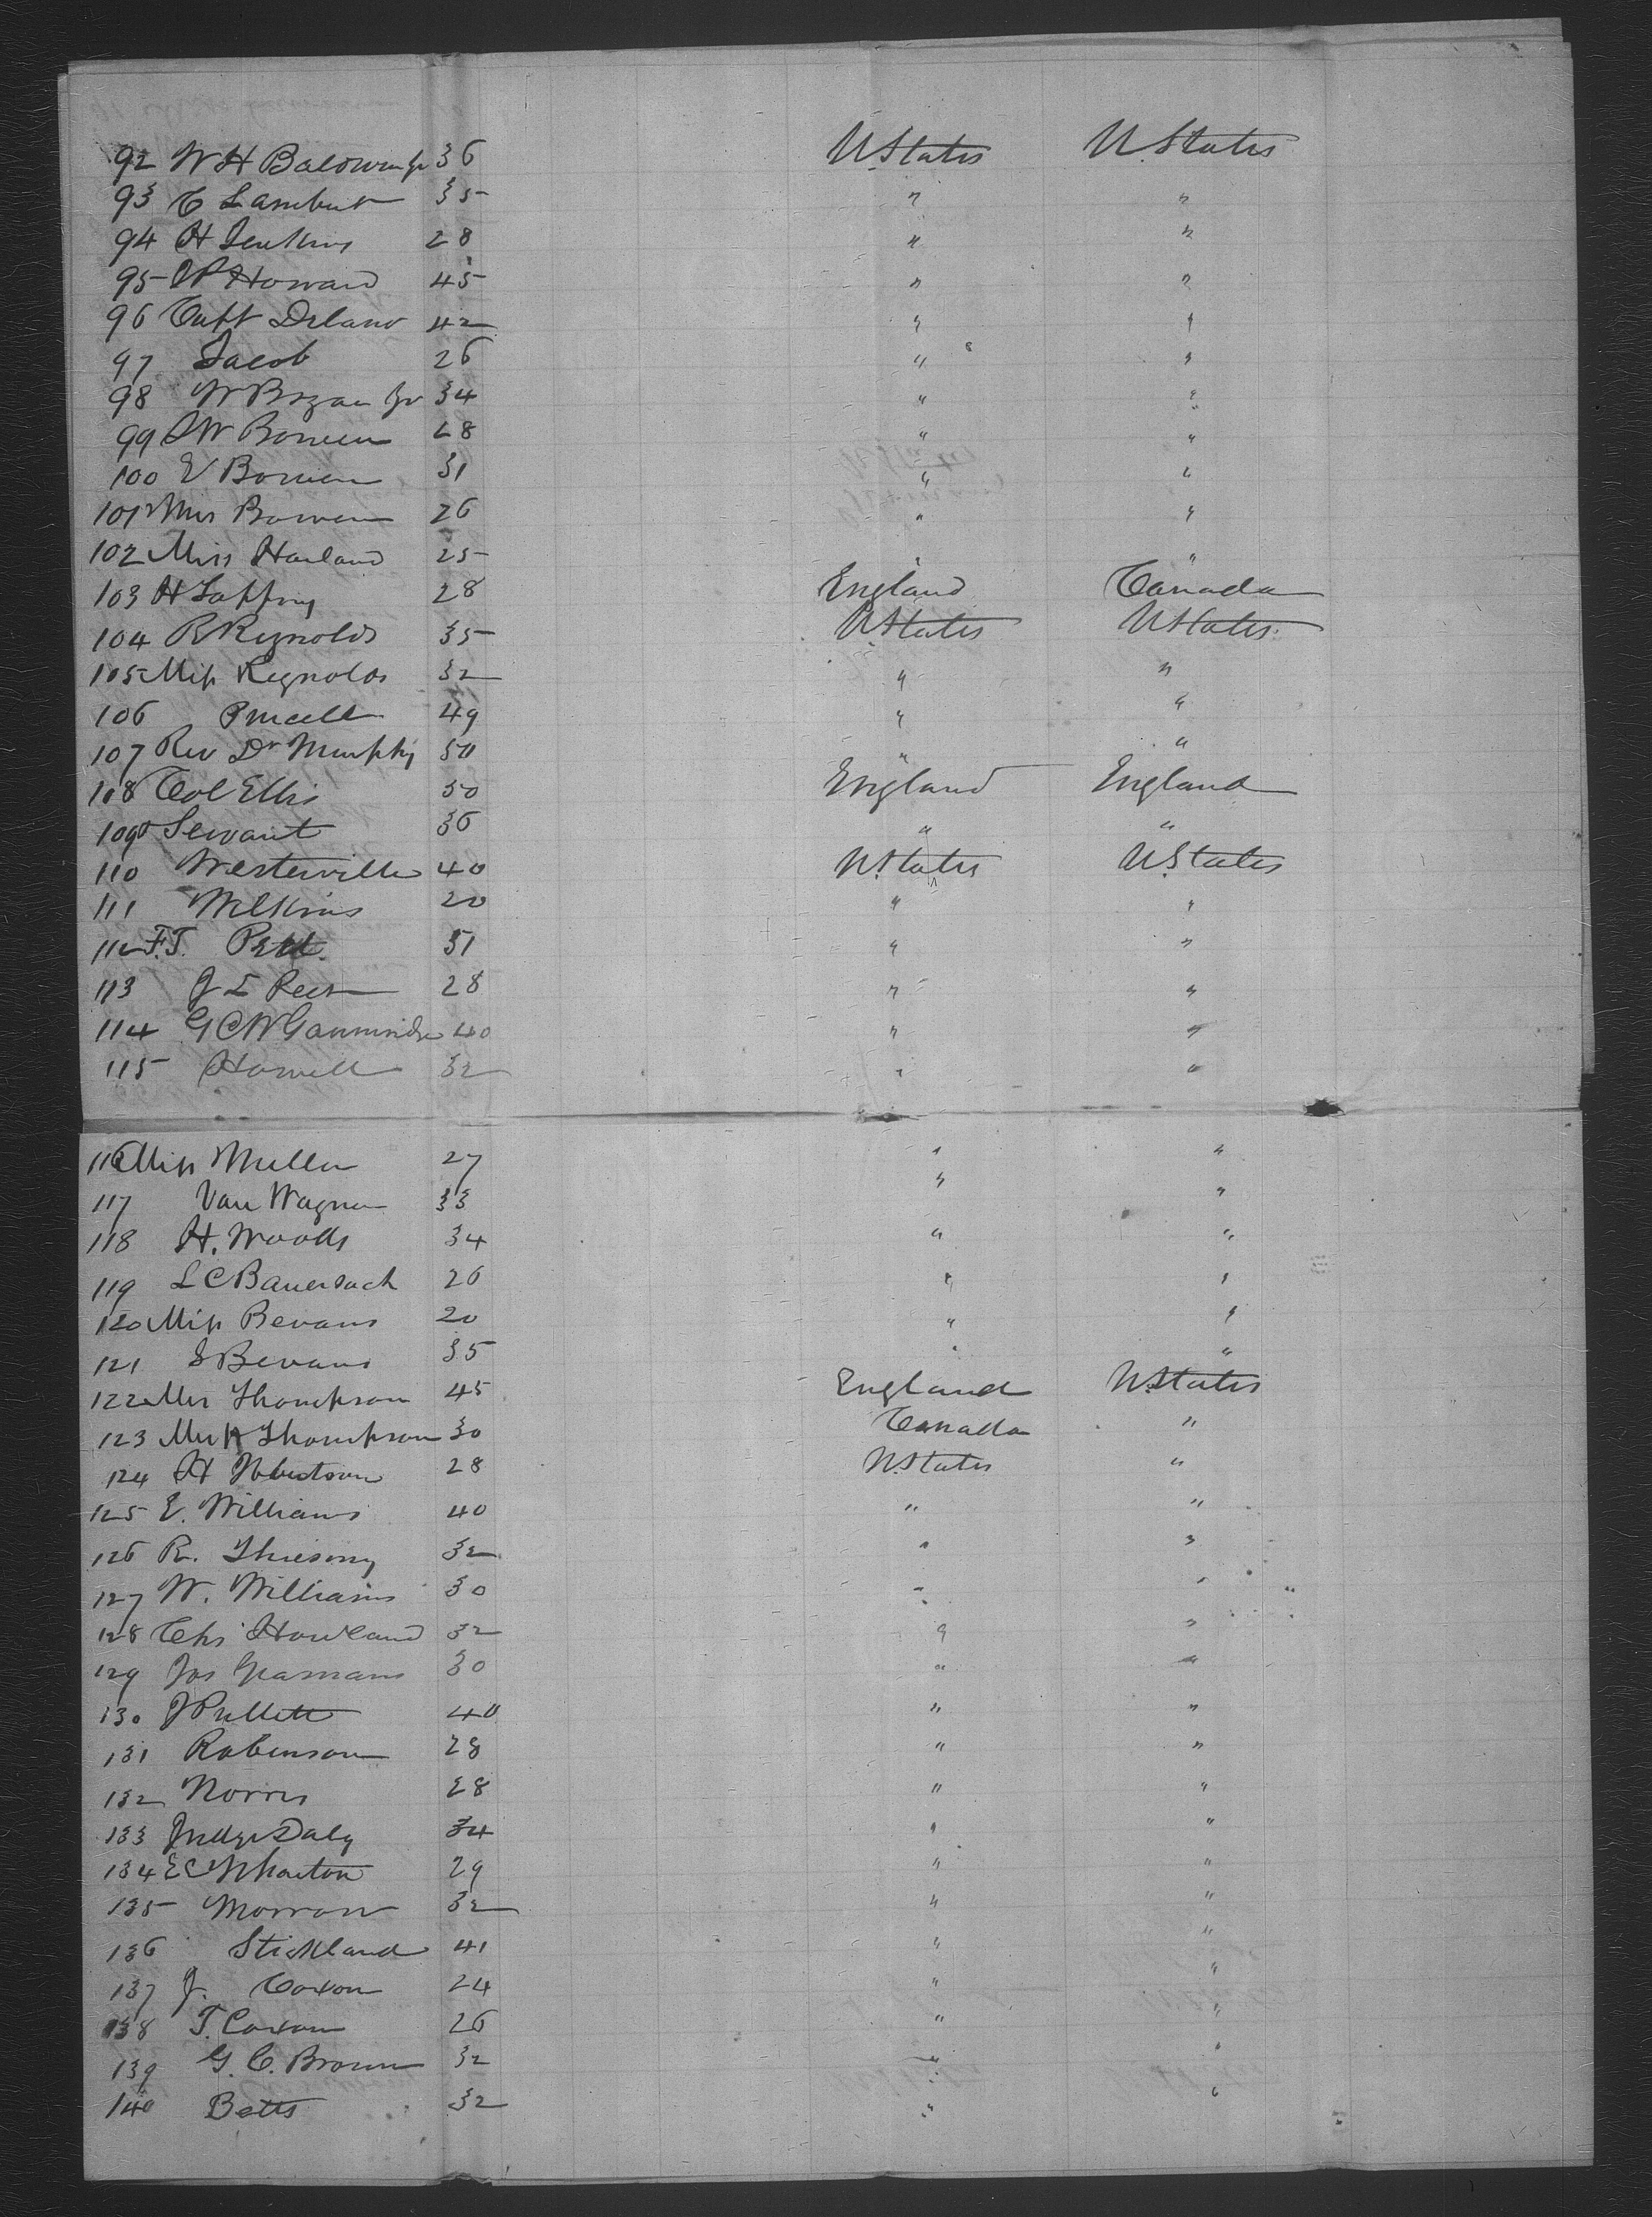 92 W H Baldwin Jr 36 U.States U.States
93 C Lambert 35 " "
94 H Jenkins 28 " "
95 W Howard 45 " "
96 Capt Delano 42 " "
97 Jacob 26 " "
98 W Bryan Jr 34 " "
99 J W Bowen 28 " "
100 E Bowen 31 " "
101 Mrs Bowen 26 " "
102 Miss Harland 25 " "
103 H 28 England Canada
104 R Reynolds 35 U.States U.States
105 Miss Reynolds 32 " "
106 Purcell 49 " "
107 Rev Dr Murphy 50 " "
108 Col Ellis 50 England England
109 Servant 36 " "
110 Westerville 40 U.States U.States
111 Wilkins 20 " "
112 F.T. 51 " "
113 J L 28 " "
114 G C W 40 " "
115 Howell 32 " "
116 Miss Muller 27 " "
117 Van Wagner 33 " "
118 H. Woods 34 " "
119 L C Bauersach 26 " "
120 Miss Bevans 20 " "
121 S Bevans 35 " "
122 Mrs Thompson 45 England U.States
123 Mrs A Thompson 30 Canada "
124 H 28 U.States "
125 E. Williams 40 " "
126 R. 32 " "
127 W. Williams 30 " "
128 Chs Howland 32 " "
129 Jos 30 " "
130 J Pullett 40 " "
131 Robinson 28 " "
132 Norris 28 " "
133 Judge Daly 34 " "
134 E C Wharton 29 " "
135 Morrow 32 " "
136 Stickland 41 " "
137 J. Coxon 24 " "
138 T. Coxon 26 " "
139 G. C. Brown 32 " "
140 Betts 32 " "